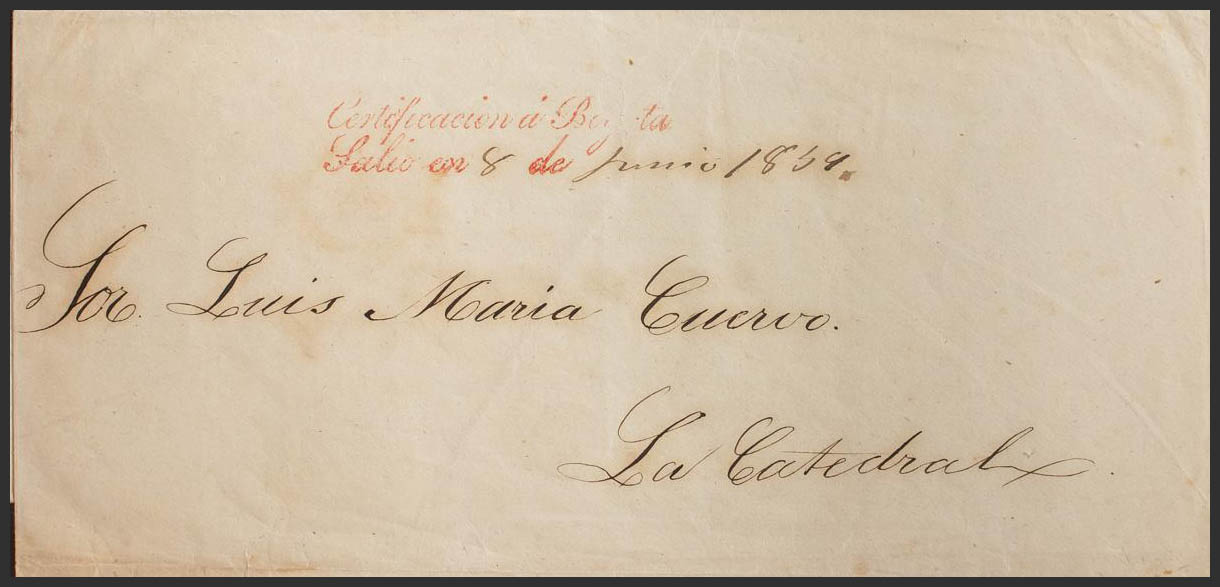 Certificacion á Bogota
Salio en 8 de Junio 1859.
Sor. Luis Maria Cuervo.
La Catedral.